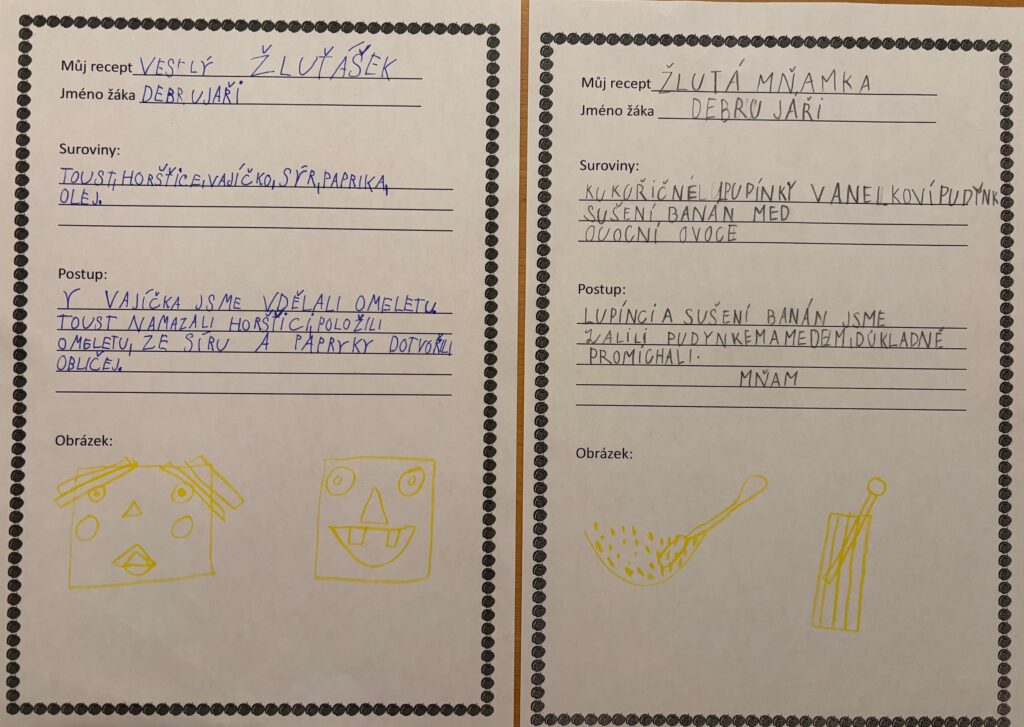 Můj recept VESELÝ ŽLUŤÁŠEK
Jméno žáka DEBRUJAŘI
Suroviny:
TOUST, HORŠŤICE, VAJÍČKO, SÝR, PAPRIKA,
OLEJ.
Postup:
Y VAJÍČKA JSME VDĚLALI OMELETU.
TOUST NAMAZALI HORŠŤICÍ, POLOŽILI
OMELETU, ZE SÍRU A PAPRYKY DOTVOŘILI
OBLIČEJ.
Obrázek:
Můj recept ŽLUTÁ MŇAMKA
Jméno žáka DEBRU JÁŘI
Suroviny:
KUKUŘIČNÉ LUPÍNKY VANELKOVÍ PUDYNK
SUŠENÍ BANÁN MED
OVOCNÍ OVOCE
Postup:
LUPÍNCI A SUŠENÍ BANÁN JSME
ZALILI PUDYNKEM A MEDEM, DŮKLADNĚ
PROMICHALI.
MŇAM
Obrázek: